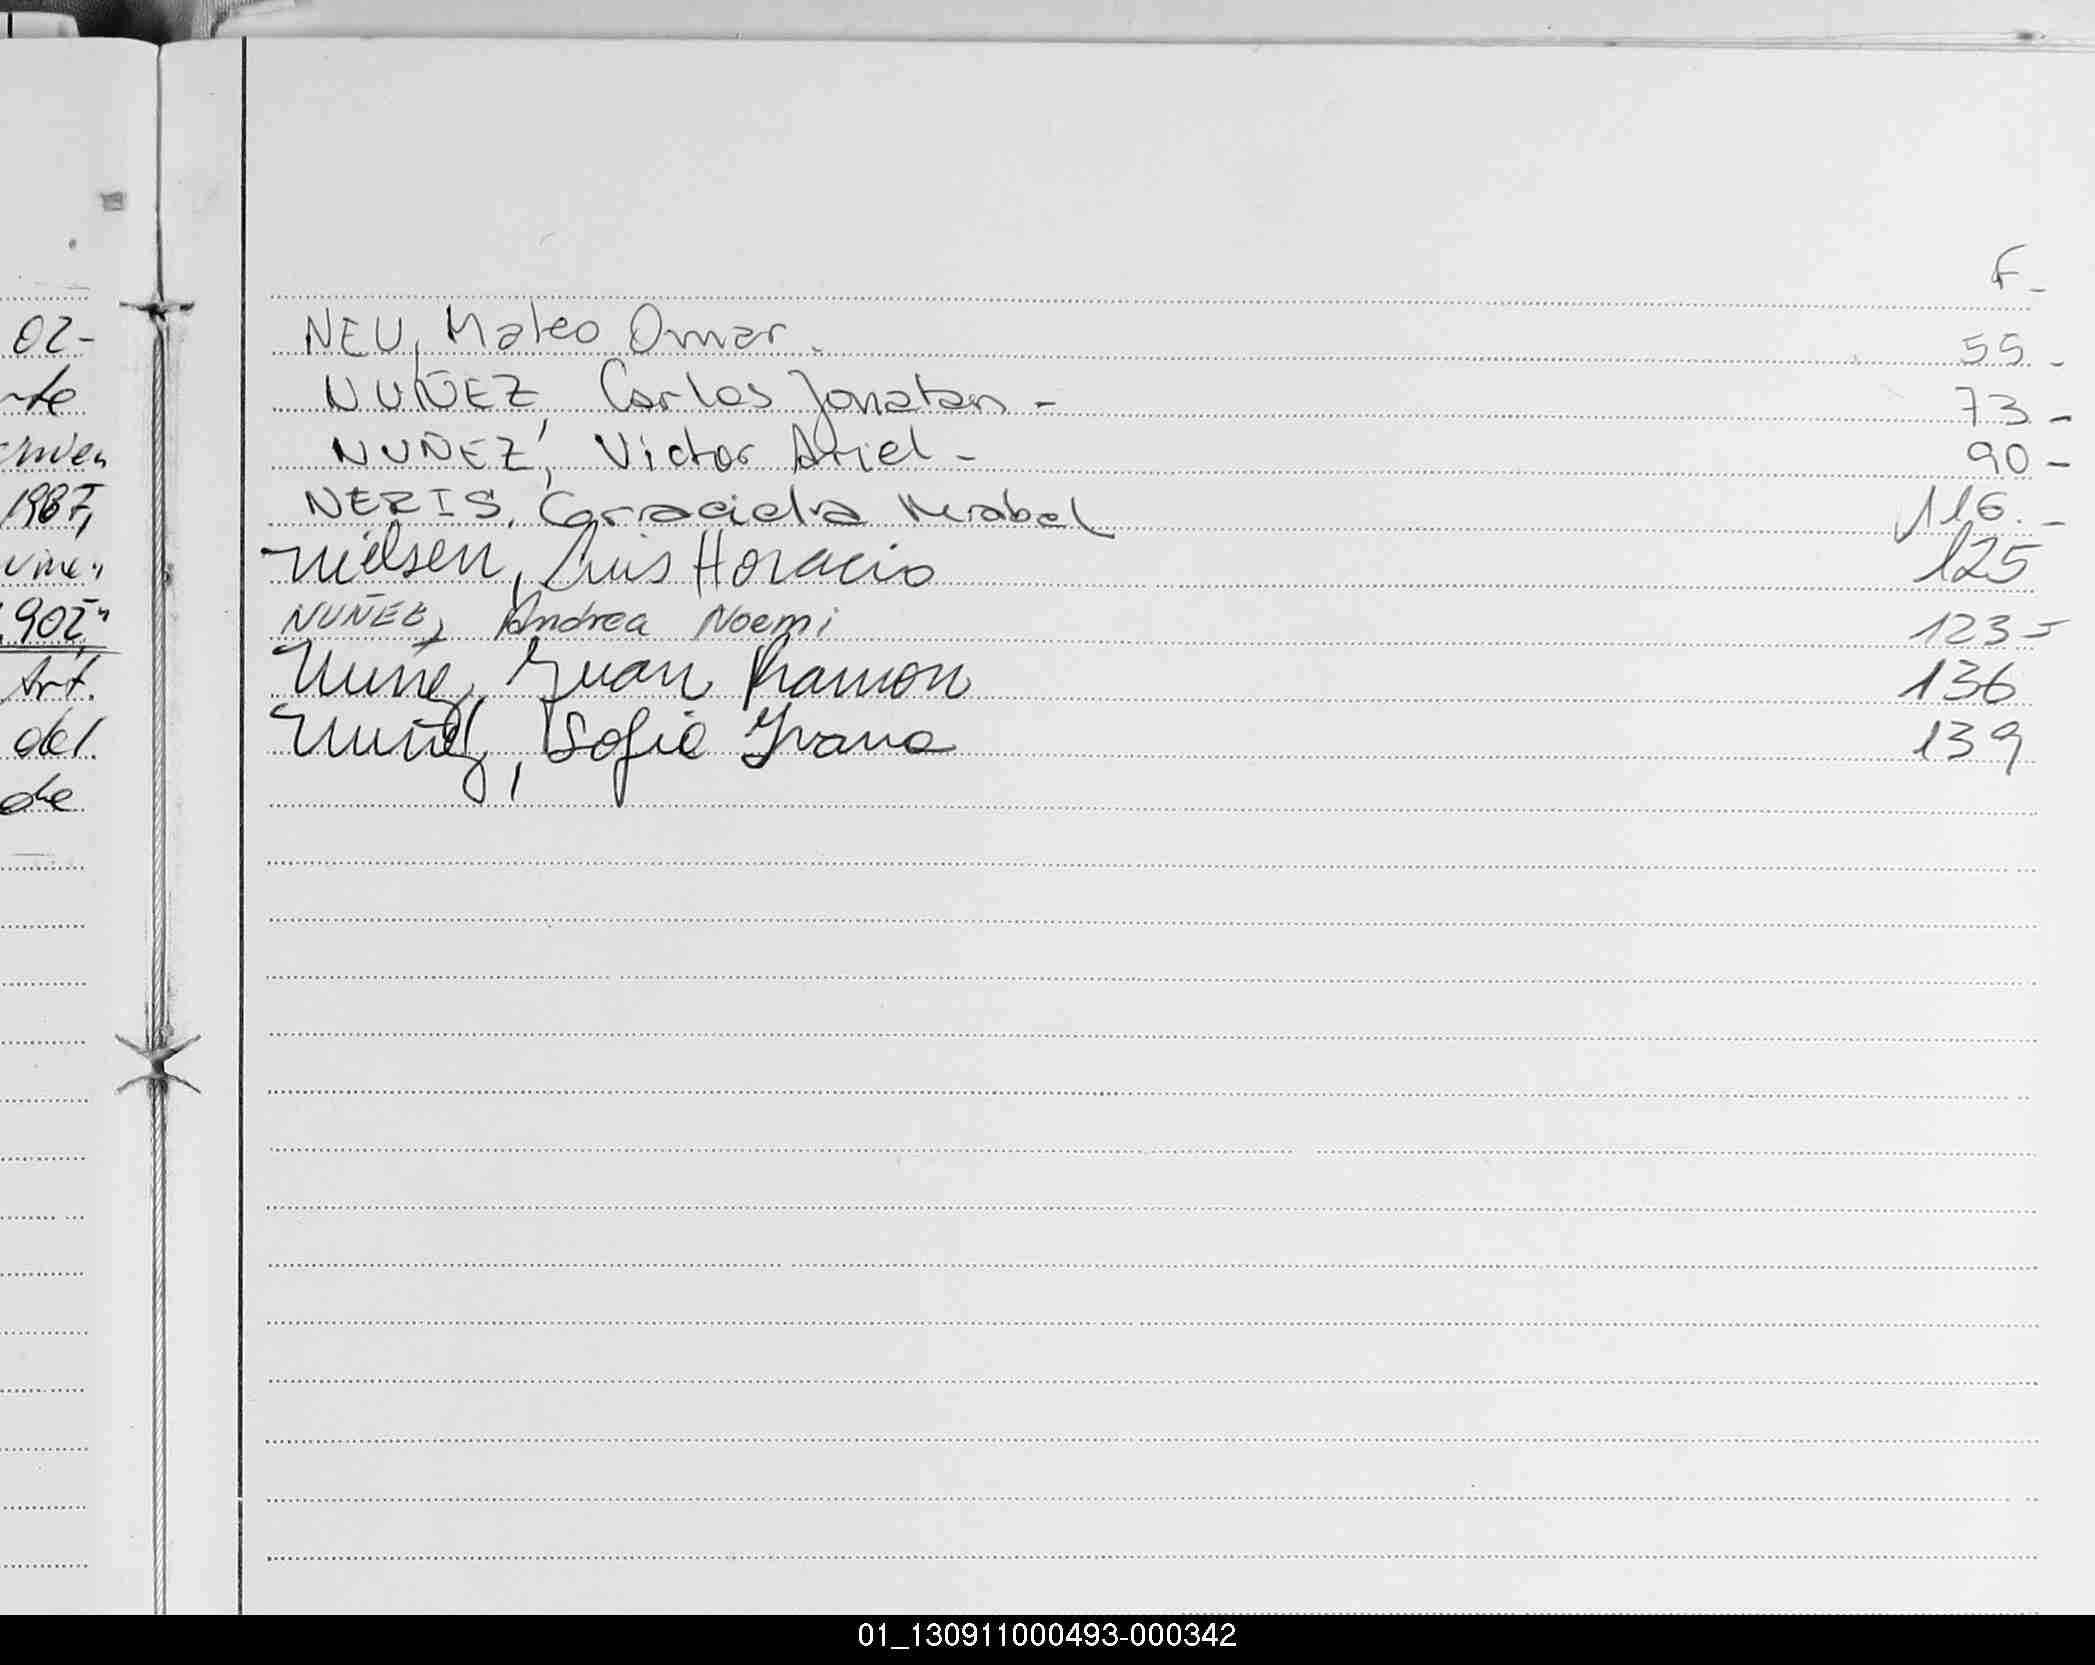 02-
1987,
902"
Art.
del.
de
F-
NEU, Mateo Omar. 55-
NUÑEZ, Carlos Jonatan - 73-
NUÑEZ, Victor Ariel - 90-
NERIS, Graciela Mabel 116.-
Nielsen, Luis Horacio 125
NUÑEZ, Andrea Noemi 123-
Nuñez, Juan Ramon 136
Nuñez, Sofia Ivana 139
01_130911000493-000342